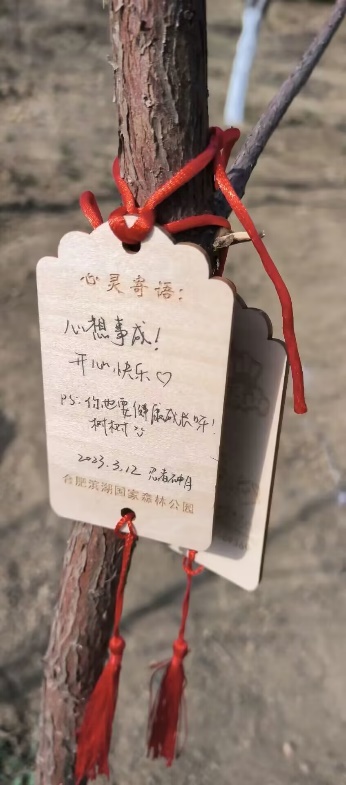 心灵寄语：
心想事成！
开心快乐♡
PS.你也要健康成长呀！
树树
2023.3.12 忍者神月
合肥滨湖国家森林公园